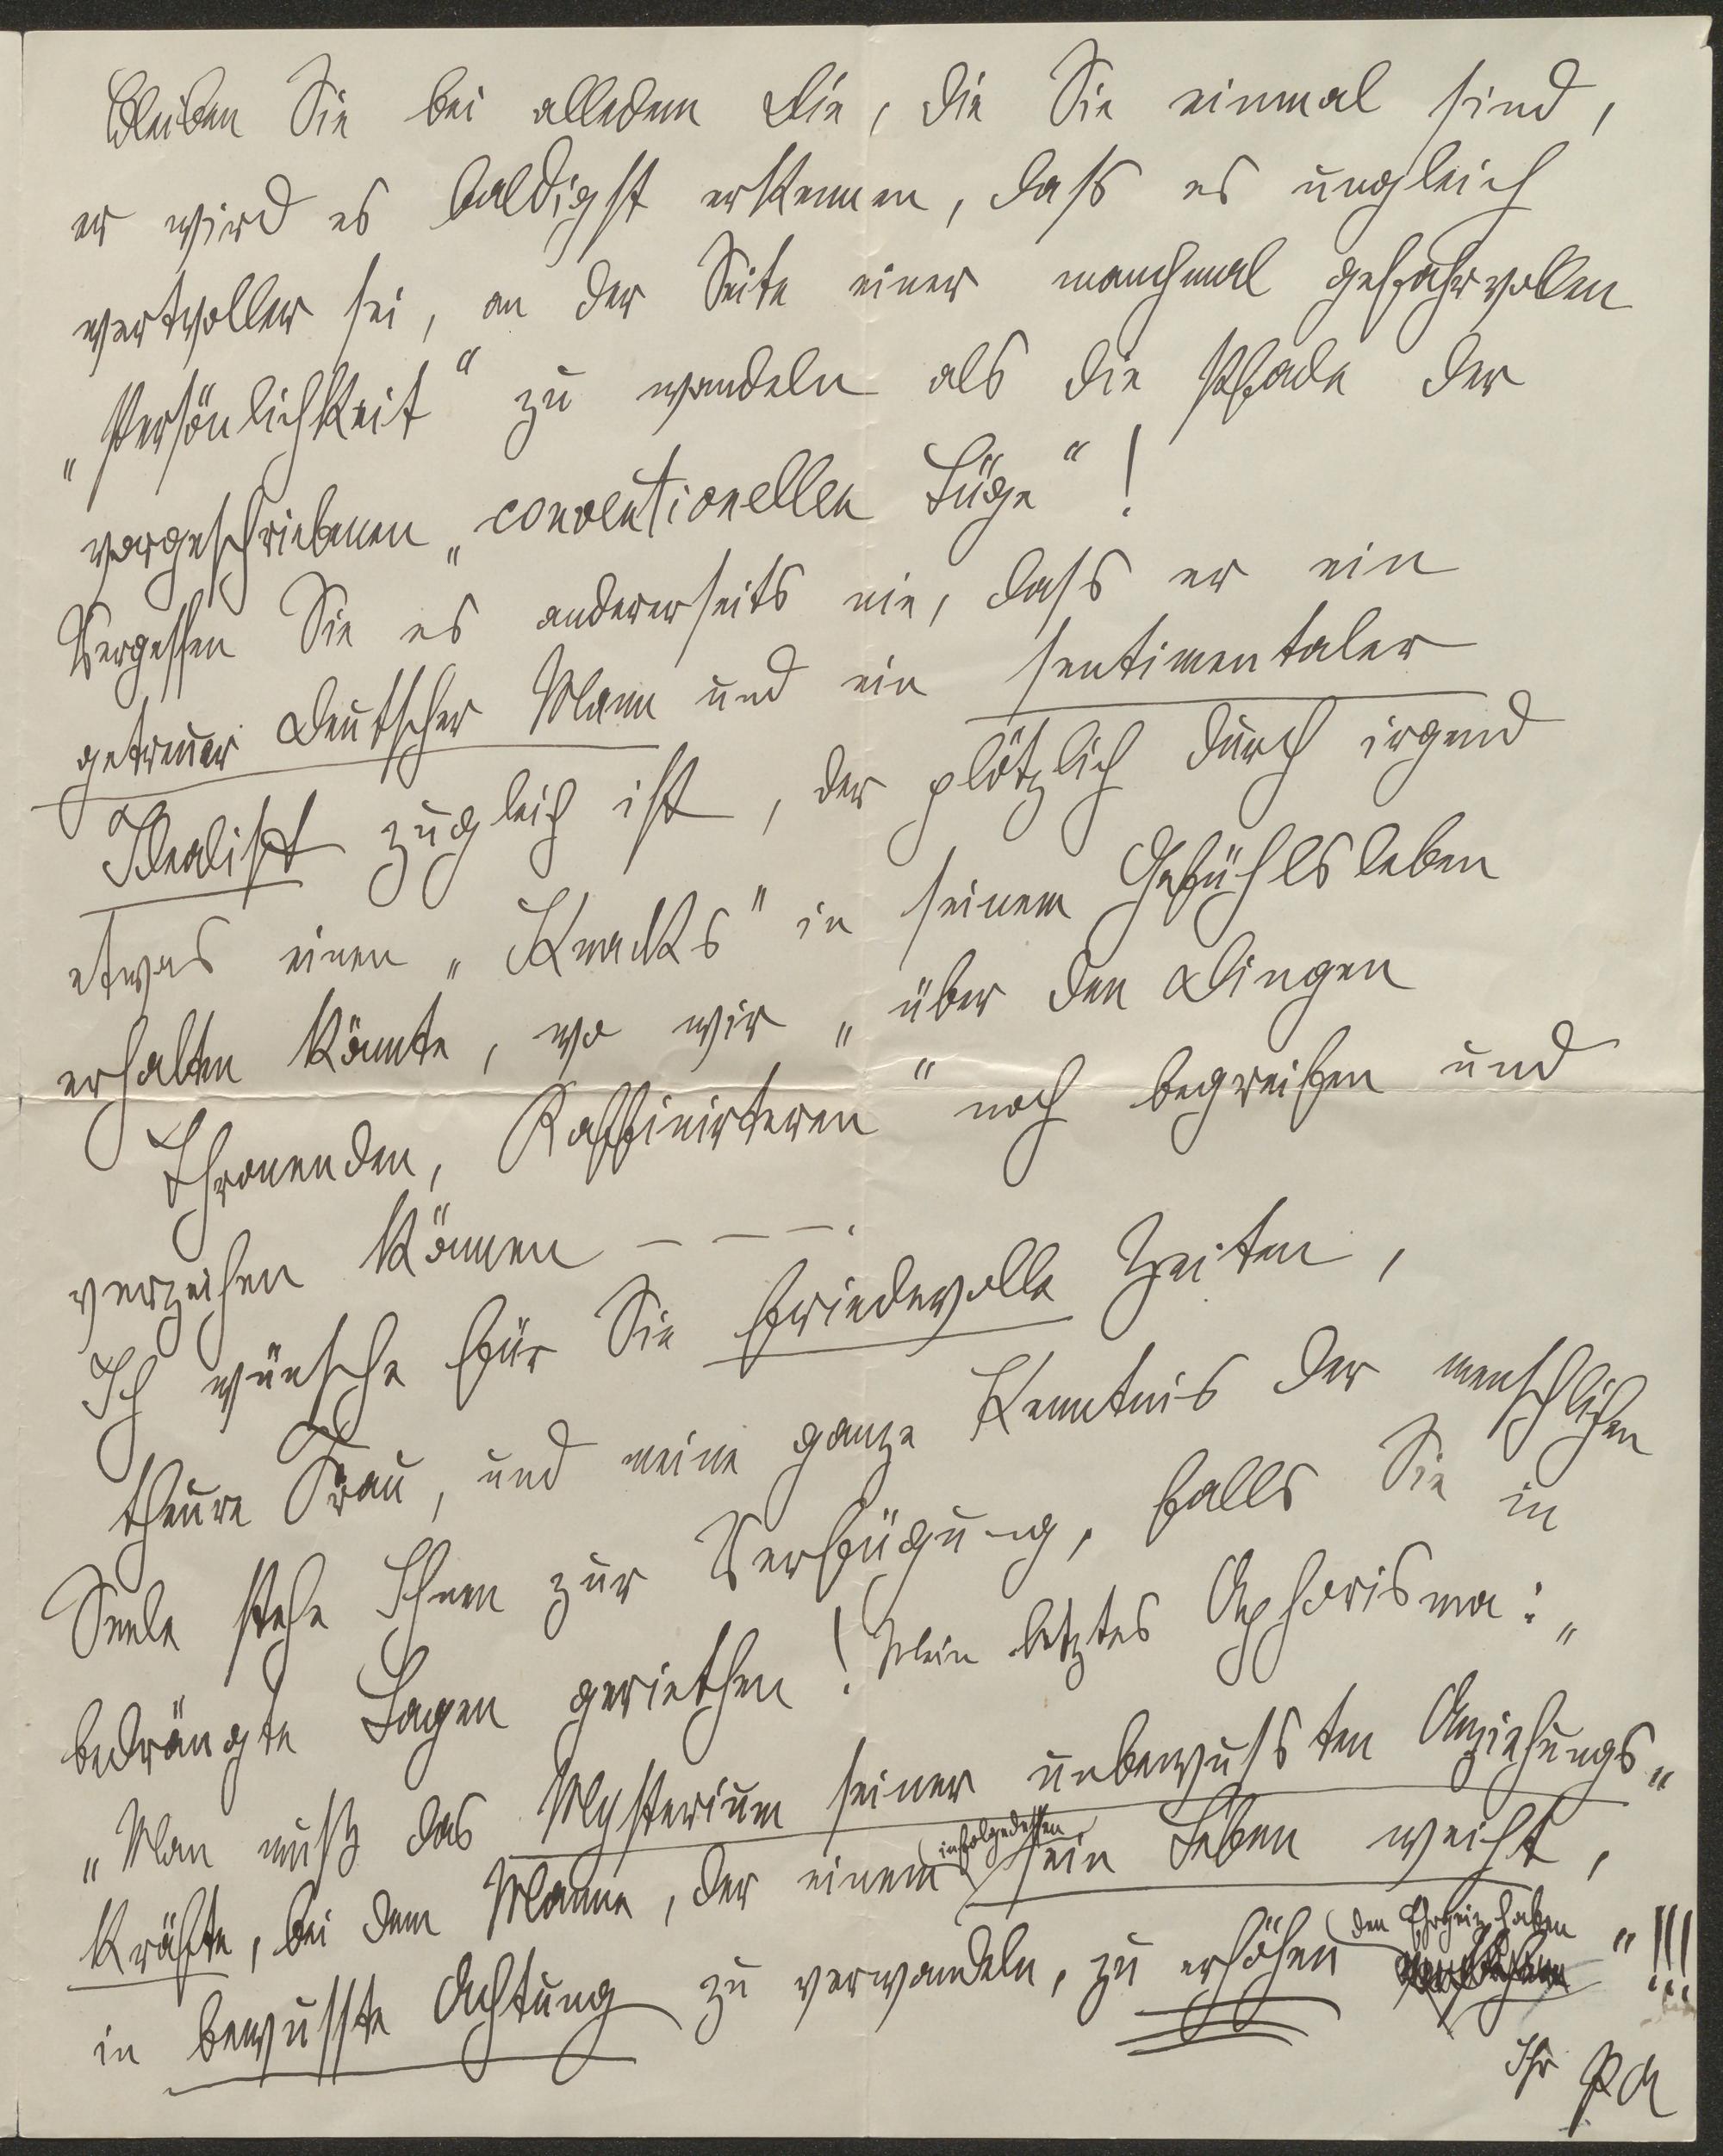 Bleiben Sie bei alledem Die, die Sie einmal sind,
er wird es baldigst erkennen, dass es ungleich
wertvoller sei, an der Seite einer manchmal gefahrvollen
„Persönlichkeit“ zu wandeln als die Pfade der
vorgeschriebenen „conventionellen Lüge“!
Vergessen Sie es andererseits nie, dass er ein
getreuer deutscher Mann und ein sentimentaler
Idealist zugleich ist, der plötzlich durch irgend
etwas einen „Knacks“ in seinem Gefühlsleben
erhalten könnte, wo wir „über den Dingen
Thronenden, Raffinirteren“ noch begreifen und
verzeihen können – – – .
Ich wünsche für Sie friedevolle Zeiten,
theure Frau, und meine ganze Kenntnis der menschlichen
Seele stehe Ihnen zur Verfügung, falls Sie in
bedrängte Lagen geriethen! Mein letztes Aphorisma: „
„Man muß das Mysterium seiner unbewussten Anziehungs„
kräfte, bei dem Manne, der einem infolgedessen sein Leben weiht,
in bewusste Achtung zu verwandeln, zu erhöhen den Ehrgeiz haben“!!!
Ihr PA